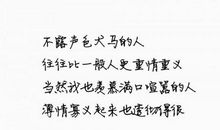 不露声色犬马的人
往往比一般人更重情重义
当然我也羡慕满口喧嚣的人
薄情寡义起来也遗彻得很